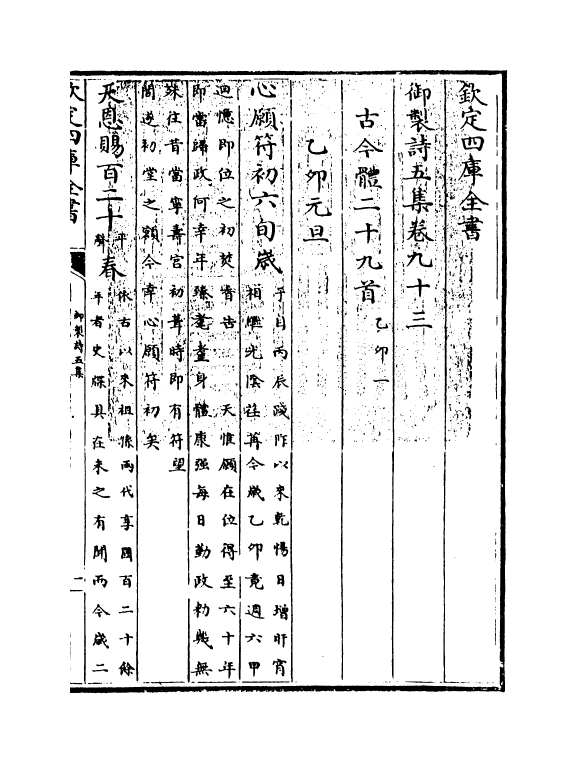 欽定四庫全書
御製詩五集卷九十三
古今體二十九首 乙卯一
乙卯元旦
心願符初六旬歲 予自丙辰踐阼以來乾惕日增旰宵
相繼光陰荏苒今歲乙卯竟週六甲
迴憶即位之初焚香告 天惟願在位得至六十年
即當歸政何幸年臻耄耋身體康强每日勤政勑幾無
殊往昔當寧壽宮初葺時即有符望
閣遂初堂之額今幸心願符初矣
天恩賜百二十平聲春 古以來祖孫兩代享國百二十餘
年者史牒具在未之有聞而今歲二
欽定四庫全書
御製詩五集
一